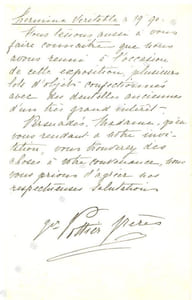 Hermine Veritable à 19.90.
Nous tenons aussi à vous
faire connaître que nous
avons réuni à l'occasion
de cette exposition, plusieurs
lots d'objets confectionnés
avec des dentelles anciennes
d'un très grand intérêt.
Persuadés, Madame, qu'en
vous rendant à notre invi-
tation, vous trouverez des
choses à votre convenance, nous
vous prions d'agréer nos
respectueuses salutations
Pottier frères